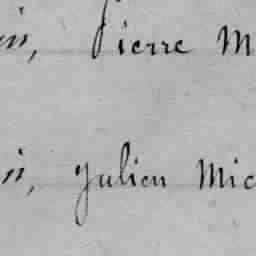 in, Pierre M
in, Julien Mic